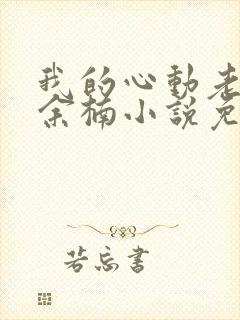 我的心動老
余楠小說免
若忘書